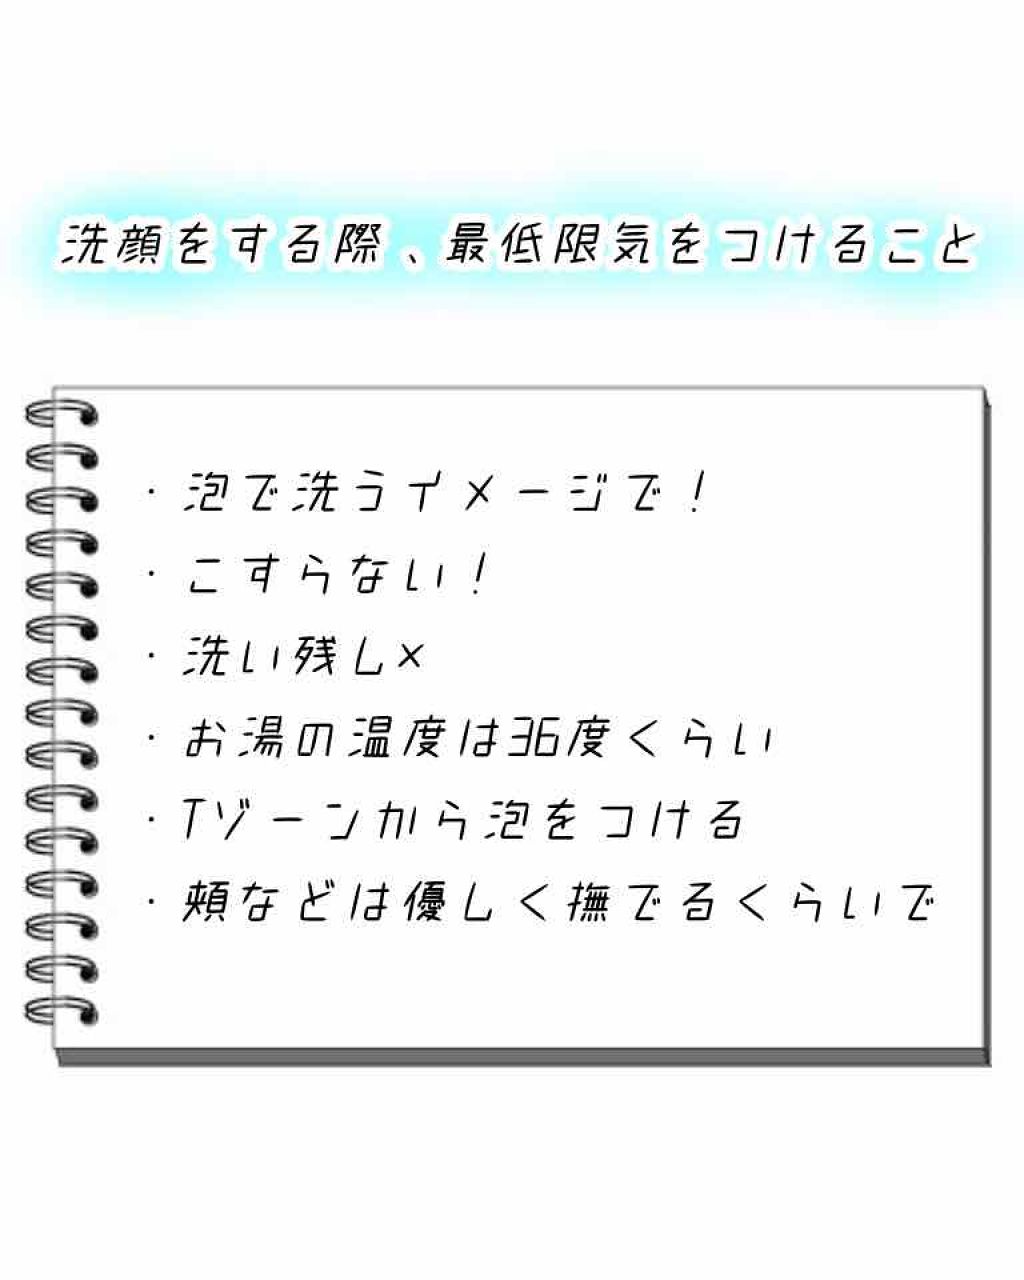 洗顔をする際、最低限気をつけること
・泡で洗うイメージで！
・こすらない！
・洗い残し×
・お湯の温度は36度くらい
・Tゾーンから泡をつける
・頬などは優しく撫でるくらいで